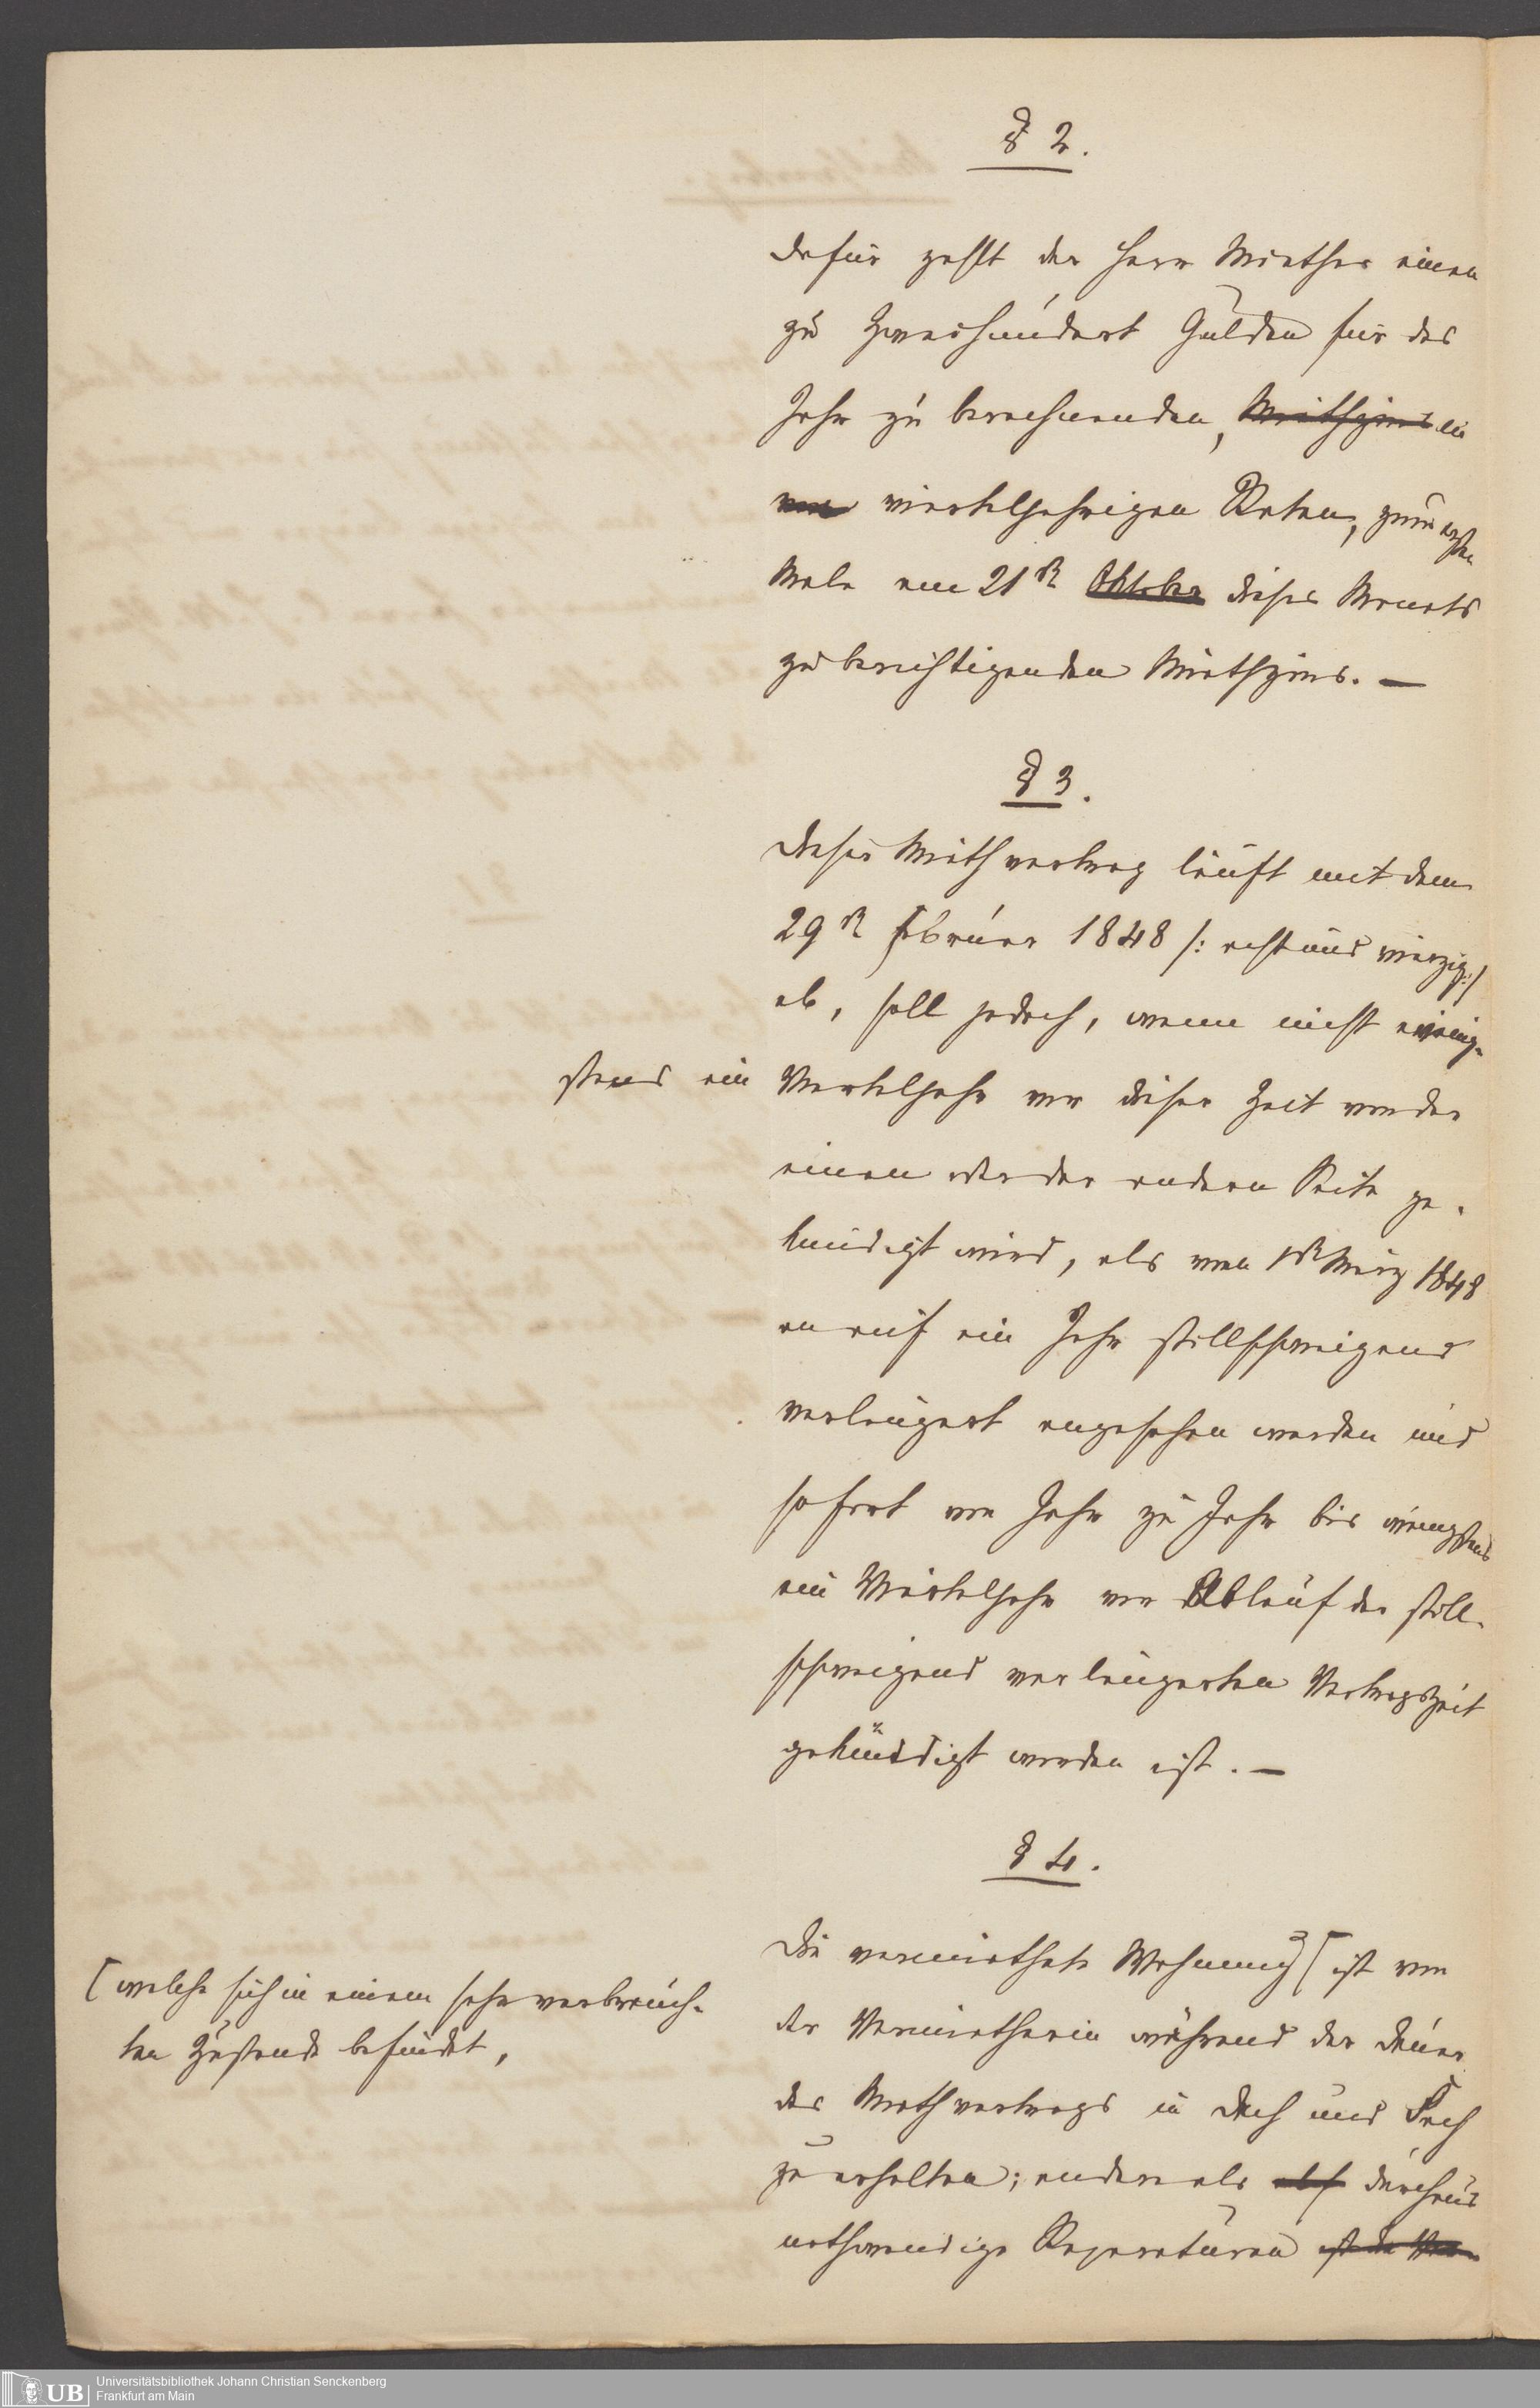 § 2.
Dafür zahlt der Herr Miether einen
zu Zweihundert Gulden für das
Jahr zu berechnenden, Miethzins in
vierteljährigen Raten, zum ersten
Male am 21n Oktober dieses Monats
zu berichtigenden Miethzins. —
§ 3.
Dieser Miethvertrag läuft mit dem
29n Februar 1848 /: acht und vierzig :/
ab, soll jedoch, wenn nicht wenig-
stens ein Vierteljahr vor dieser Zeit von der
einen oder der andern Seite ge-
kündigt wird, als vom 1n März 1848
an auf ein Jahr stillschweigend
verlängert angesehen werden und
sofort von Jahr zu Jahr bis wenigstens
ein Vierteljahr vor Ablauf der still-
schweigend verlängerten Vertragszeit
gekündigt worden ist. —
§ 4.
Die vermiethete Wohnung [ ist von
der Vermietherin während der Dauer
des Miethvertrags in Dach und Fach
zu erhalten; andere als durchaus
nothwendige Reparaturen ist die Ver-
[ welche sich in einem sehr verbrauch-
ten Zustande befindet,
UB
Universitätsbibliothek Johann Christian Senckenberg
Frankfurt am Main